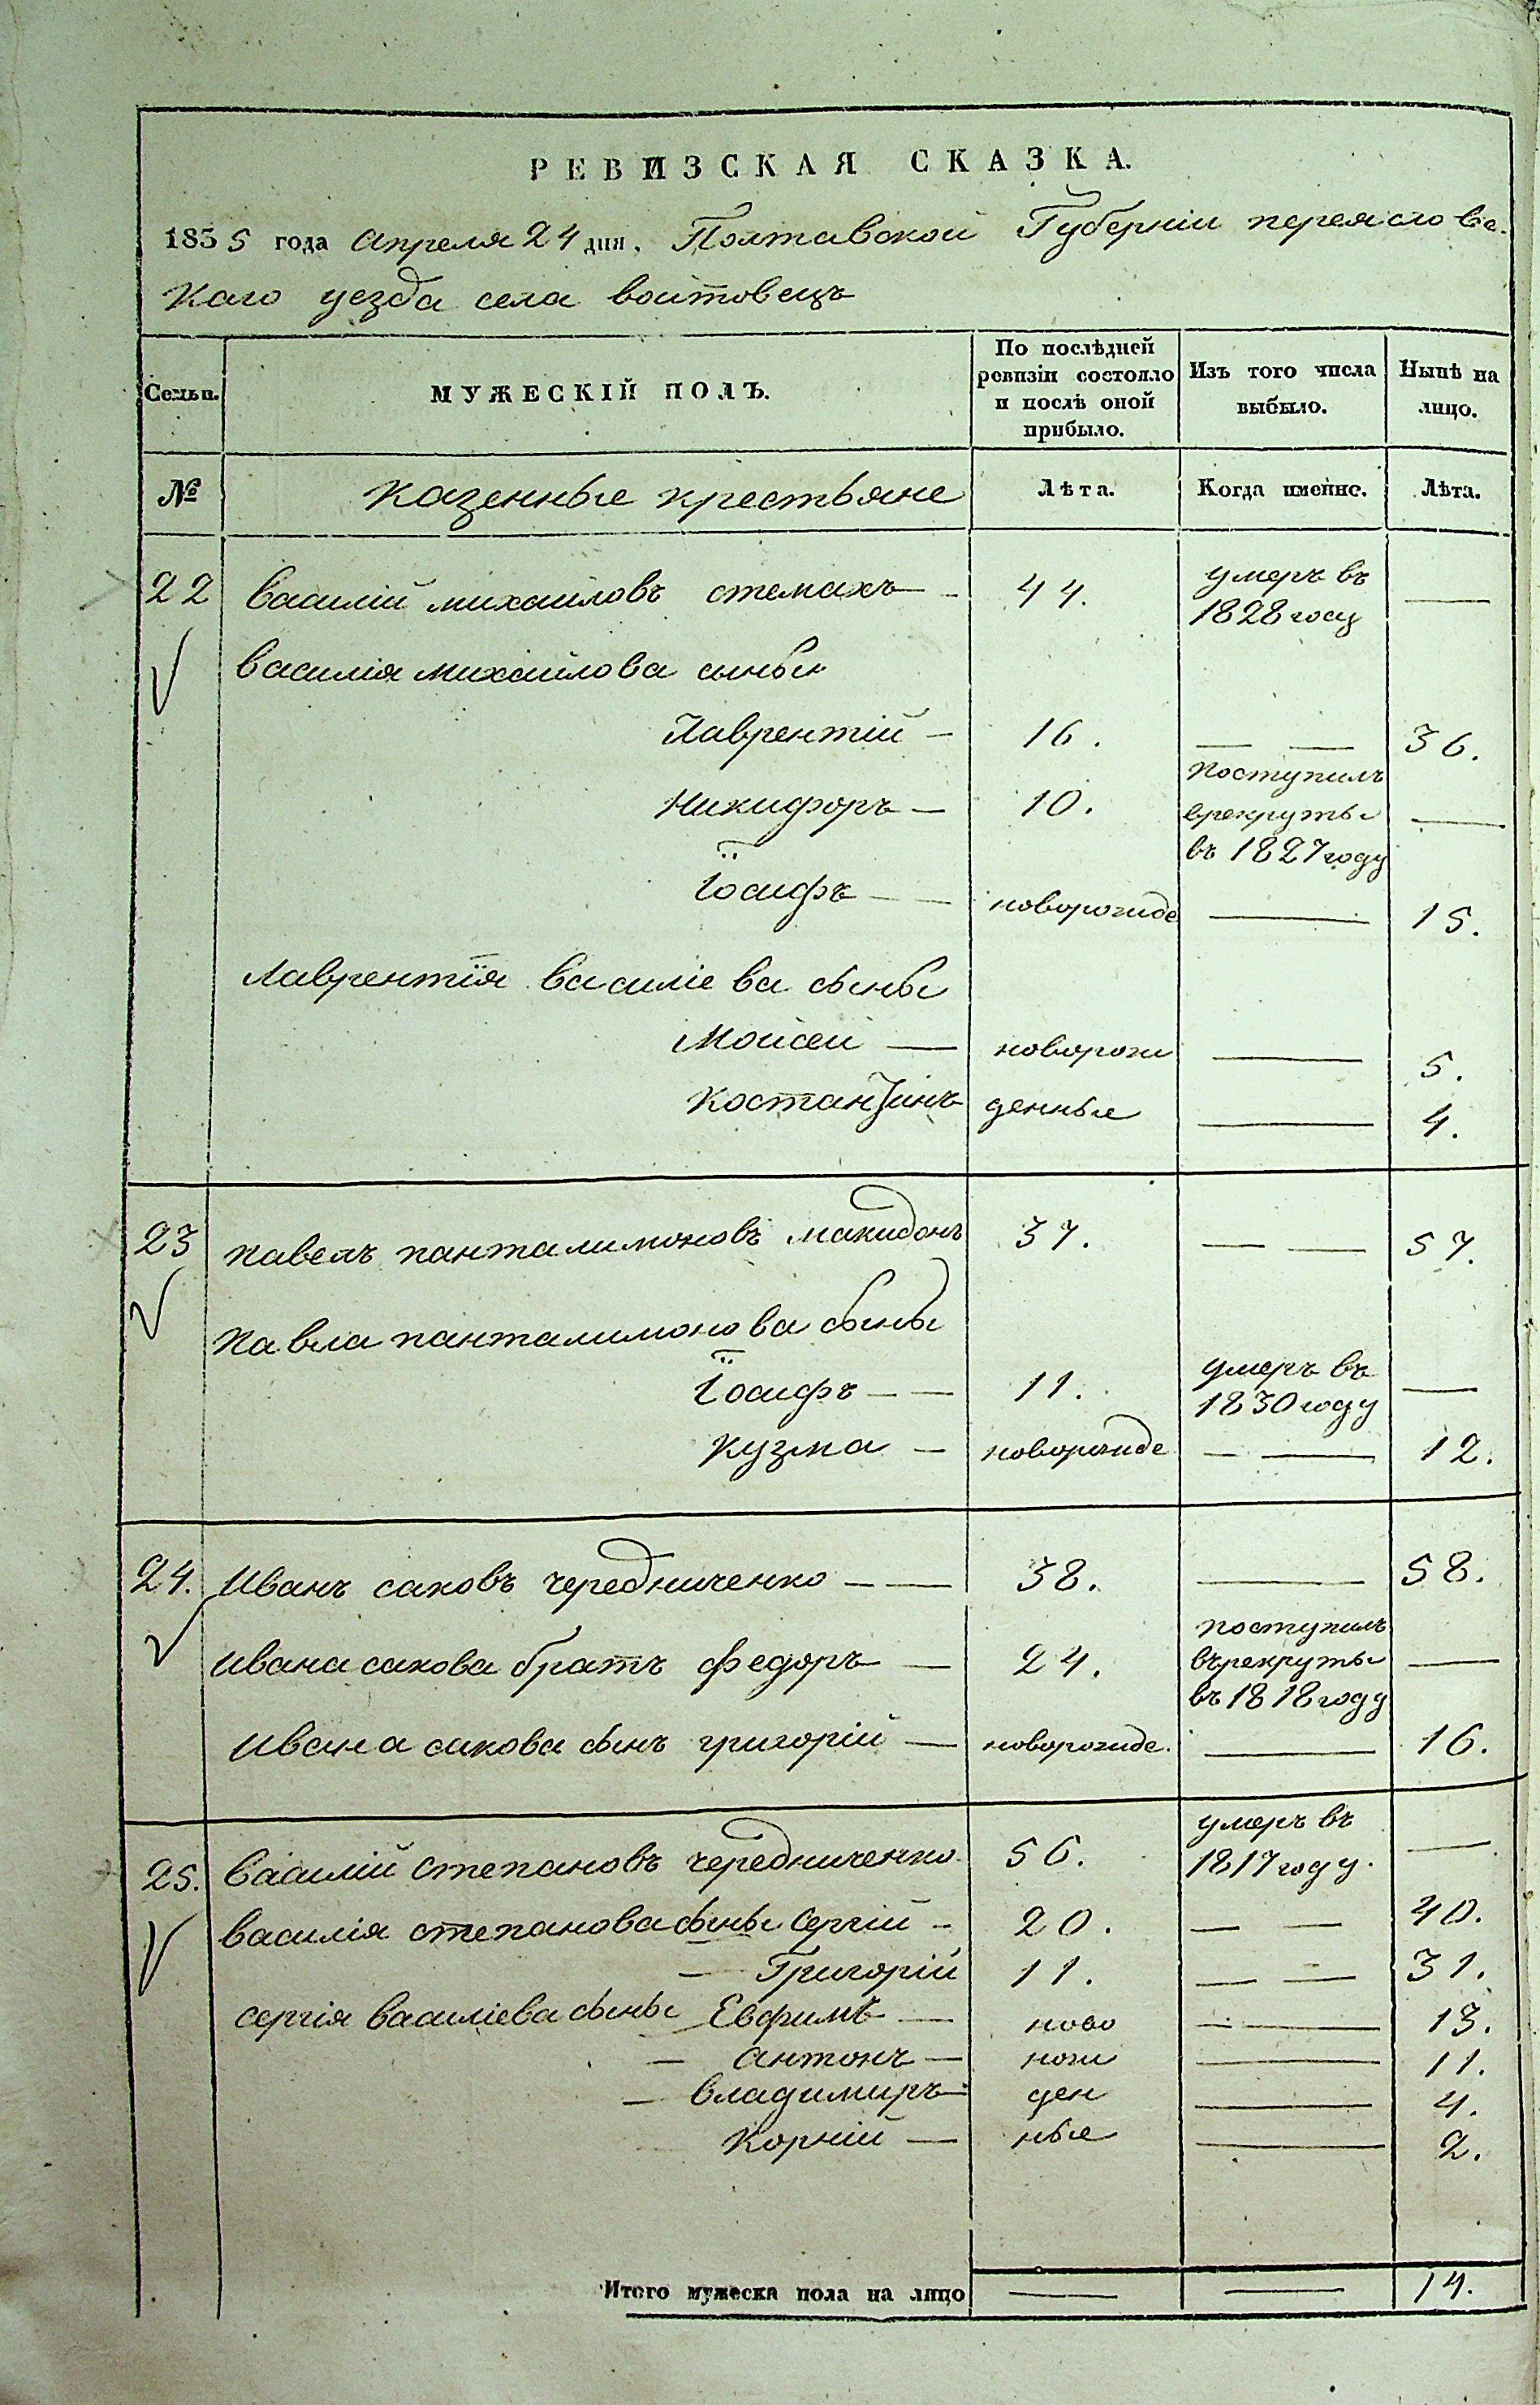 РЕВИЗСКАЯ СКАЗКА.
1835 года апреля 24 дня. Полтавской Губерніи переяславс-
каго уезда села войтовецъ
Семьи. МУЖЕСКІЙ ПОЛЪ. По послѣдней ревизіи состояло и послѣ оной прибыло. Изъ того числа выбыло. Нынѣ на лицо.
№ казенные крестьяне Лѣта. Когда именно. Лѣта.
22 василій михайловъ стемахъ 44. умеръ въ 1828 году —
василія михайлова сыны
Лаврентій — 16. — — 36.
Никифоръ — 10. поступилъ врекруты въ 1827 году —
Іосифъ — — новорожде — 15.
Лаврентія василіева сыны
Моисей — новорож — 5.
Костантинъ денные — 4.
23 павелъ панталимоновъ макидонъ 37. — — 57.
Павла панталимонова сыны
Іосифъ — — 11. умеръ въ 1830 году —
Кузма — новорожде — — 12.
24. Иванъ саковъ чередниченко — — 38. — 58.
Ивана сакова братъ федоръ — 24. поступилъ върекруты въ 1818 году —
Ивана сакова сынъ григорій — новорожде. — 16.
25. Василій степановъ чередниченко 56. умеръ въ 1817 году. —
василія степанова сыны Сергій — 20. — — 40.
— Григорій 11. — — 31.
сергія василіева сыны Евфимъ — ново — — 13.
— антонъ — рож — 11.
— владимиръ — ден — 4.
Корній — ные — 2.
Итого мужеска пола на лицо — — 14.